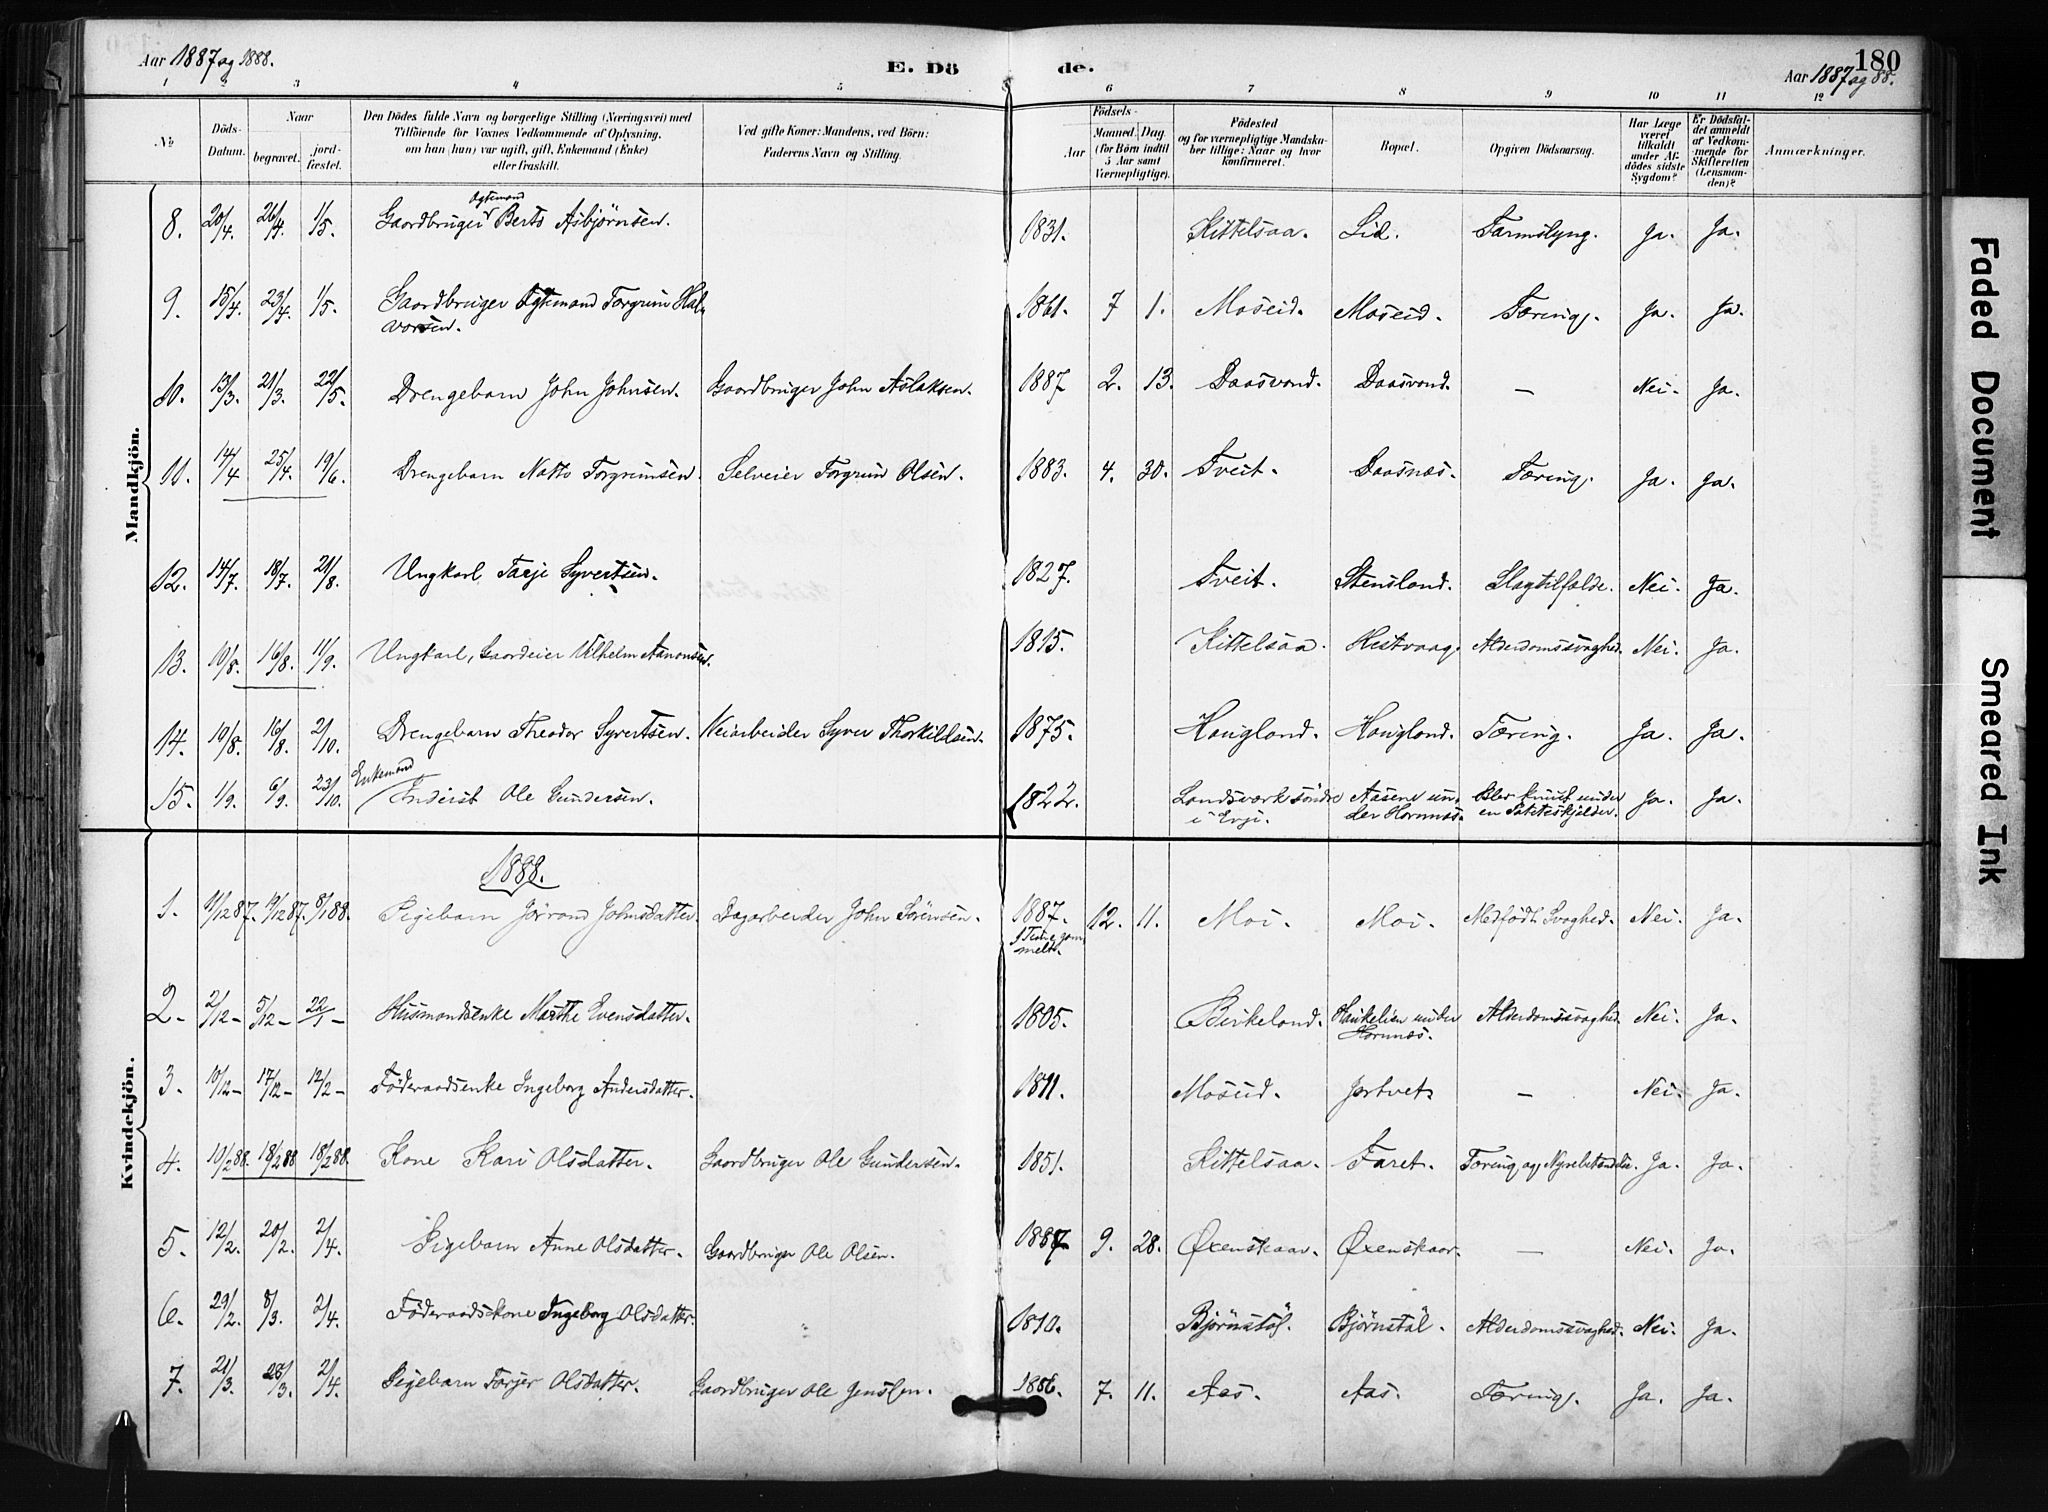 Aar 1887 og 1888. E. Döde. 180
Aar 1887 og 88.
1 2 3 4 5 6 7 8 9 10 11 12
No
Döds-Datum.
Naar
begravet.
jord-fæstet.
Den Dödes fulde Navn og borgerlige Stilling (Næringsvei) med
Tilföiende for Voxnes Vedkommende af Oplysning,
om han (hun) var ugift, gift, Enkemand (Enke)
eller fraskilt.
Ved gifte Koner: Mandens, ved Börn:
Faderens Navn og Stilling.
Födsels-
Aar
Maaned. Dag.
(for Börn indtil
5 Aar samt
Værnepligtige).
Födested
og for værnepligtige Mandska-
ber tillige: Naar og hvor
konfirmeret.
Bopæl.
Opgiven Dödsaarsag.
Har Læge
været
tilkaldt
under Af-
dödes sidste
Sygdom?
Er Dödsfal-
det anmeldt
af Vedkom-
mende for
Skifteretten
(Lensman-
den)?
Anmærkninger.
Mandkjön.
8. 20/4. 26/4. 1/5. Gaardbruger Ægtemand Berts Asbjørnsen. 1831. Kittelsaa. Lid. Tarmslyng. Ja. Ja.
9. 15/4. 23/4. 1/5. Gaardbruger Ægtemand Torgrim Hal-
vorsen. 1861. 7 1. Moseid. Moseid. Tæring. Ja. Ja.
10. 13/3. 21/3. 22/5. Drengebarn John Johnsen. Gaardbruger John Aslaksen. 1887 2. 13. Daasvand. Daasvand. — Nei. Ja.
11. 14/4 25/4. 19/6. Drengebarn Torgrimsen. Selveier Torgrim Olsen. 1883. 4. 30. Tveit. Daasnæs. Tæring. Ja. Ja.
12. 14/7. 18/7. 21/8. Ungkarl Tarje Syvertsen. 1827. Tveit. Stensland. Slagtilfælde. Nei. Ja.
13. 10/8. 16/8. 11/9. Ungkarl, Gaardeier Vilhelm Aanonsen. 1815. Kittelsaa. Hestvaag. Alderdomssvaghed. Nei. Ja.
14. 10/8. 16/8. 2/10. Drengebarn Theodor Syvertsen. Veiarbeider Syver Thorkildsen. 1875. Hougland. Hougland. Tæring. Ja. Ja.
15. 1/9. 6/9. 23/10. Enkemand
Inderst Ole Gundersen. 1822. Landsværk söndre
i Evje. Aasene un-
der Hornnæs. Blev knust under
en Ja. Ja.
Kvindekjön.
1888.
1. 11/12 87. 19/12 87. 8/1 88. Pigebarn Jørand Johnsdatter. Dagarbeider John Sörensen. 1887. 12. 11. Moi. Moi. Medfødt Svaghed. Nei. Ja.
2. 2/12 - 5/12 - 22/1 - Husmandsenke Marthe Evensdatter. 1805. Birkeland. Haukelien under
Hornnæs. Alderdomssvaghed. Nei. Ja.
3. 10/12 - 17/12 - 12/2 - Föderaadsenke Ingeborg Andersdatter. 1811. Moseid. Jortveit — Nei. Ja.
4. 10/2 88. 18/2 88 18/2 88. Kone Kari Olsdatter. Gaardbruger Ole Gundersen. 1851. Kittelsaa. Faret. Tæring og Nyrebetændelse. Ja. Ja.
5. 12/2. 20/2. 2/4. Pigebarn Anne Olsdatter. Gaardbruger Ole Olsen. 1887 9. 28. Øxenskaar. Øxenskaar. — Nei. Ja.
6. 29/2. 8/3. 2/4. Föderaadskone Ingeborg Olsdatter. 1810. Bjørnstöl. Bjørnstöl. Alderdomssvaghed. Nei. Ja.
7. 21/3. 28/3. 2/4. Pigebarn Torjer Olsdatter. Gaardbruger Ole Jenssen. 1886. 7. 11. Aas. Aas. Tæring. Ja. Ja.
Faded Document
Smeared Ink